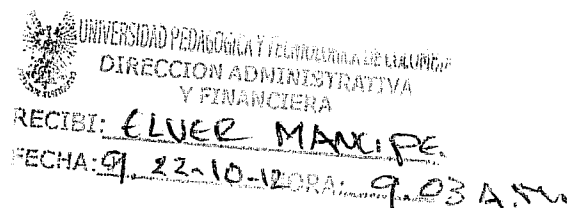 UNIVERSIDAD PEDAGOGICA Y TECNOLOGICA DE COLOMBIA
DIRECCION ADMINISTRATIVA
Y FINANCIERA
RECIBI: ELVER MANCIPE.
FECHA: 9 22-10-12 ORA: 9.03 A.M.